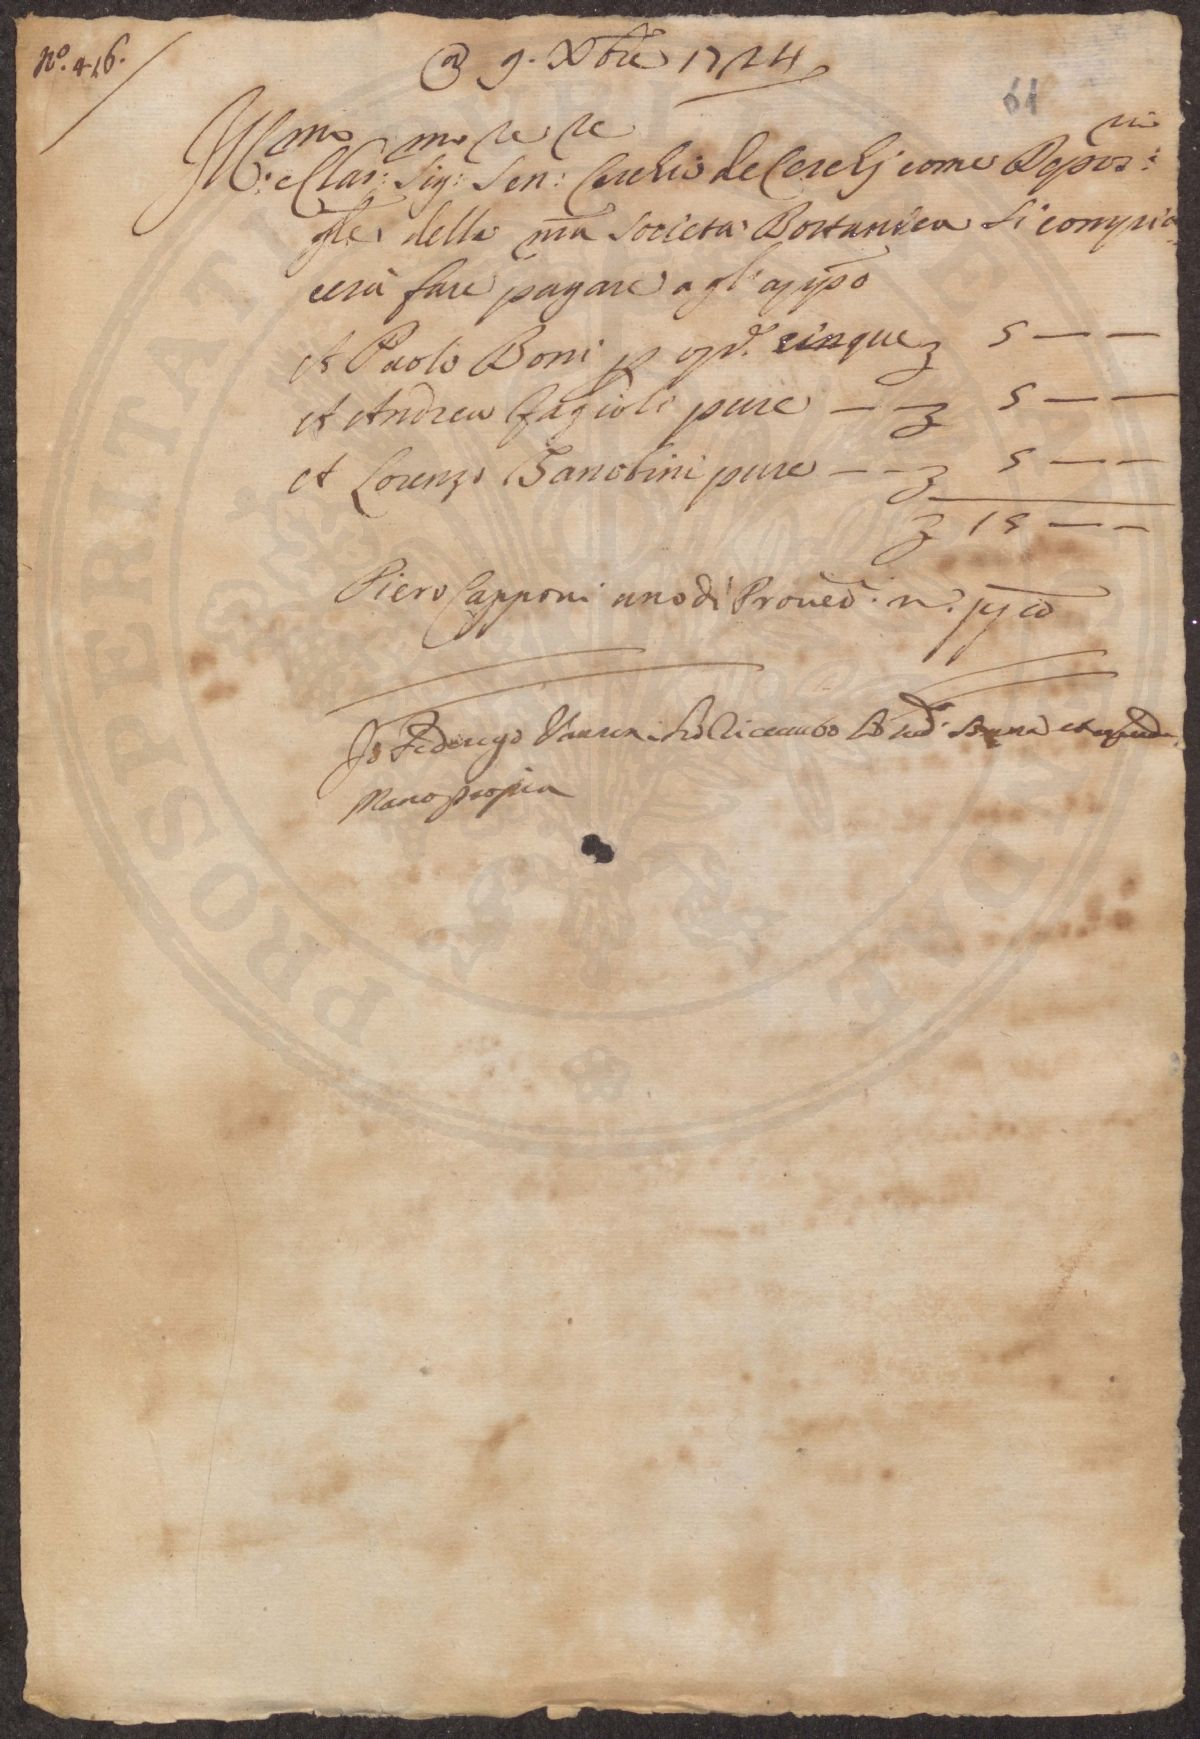 N.º 416.
@ 9. Xbre 1724
61
Ill.mo e Clar.mo Sig.re Sen.re Cerchio de Cerchj come Depos.rio
gle della nra Societa Bottanica Si compia-
cerà fare pagare agl'appo
A Paolo Boni p opd. cinque 5 — —
A Andrea Fagioli pure — 5 — —
A Lorenzo Banobini pure — — 5 — —
15 — —
Piero Capponi uno di Proued.
Io Federigo Ho Riceuuto
Mano propria
PROSPERITATI PUBLICAE